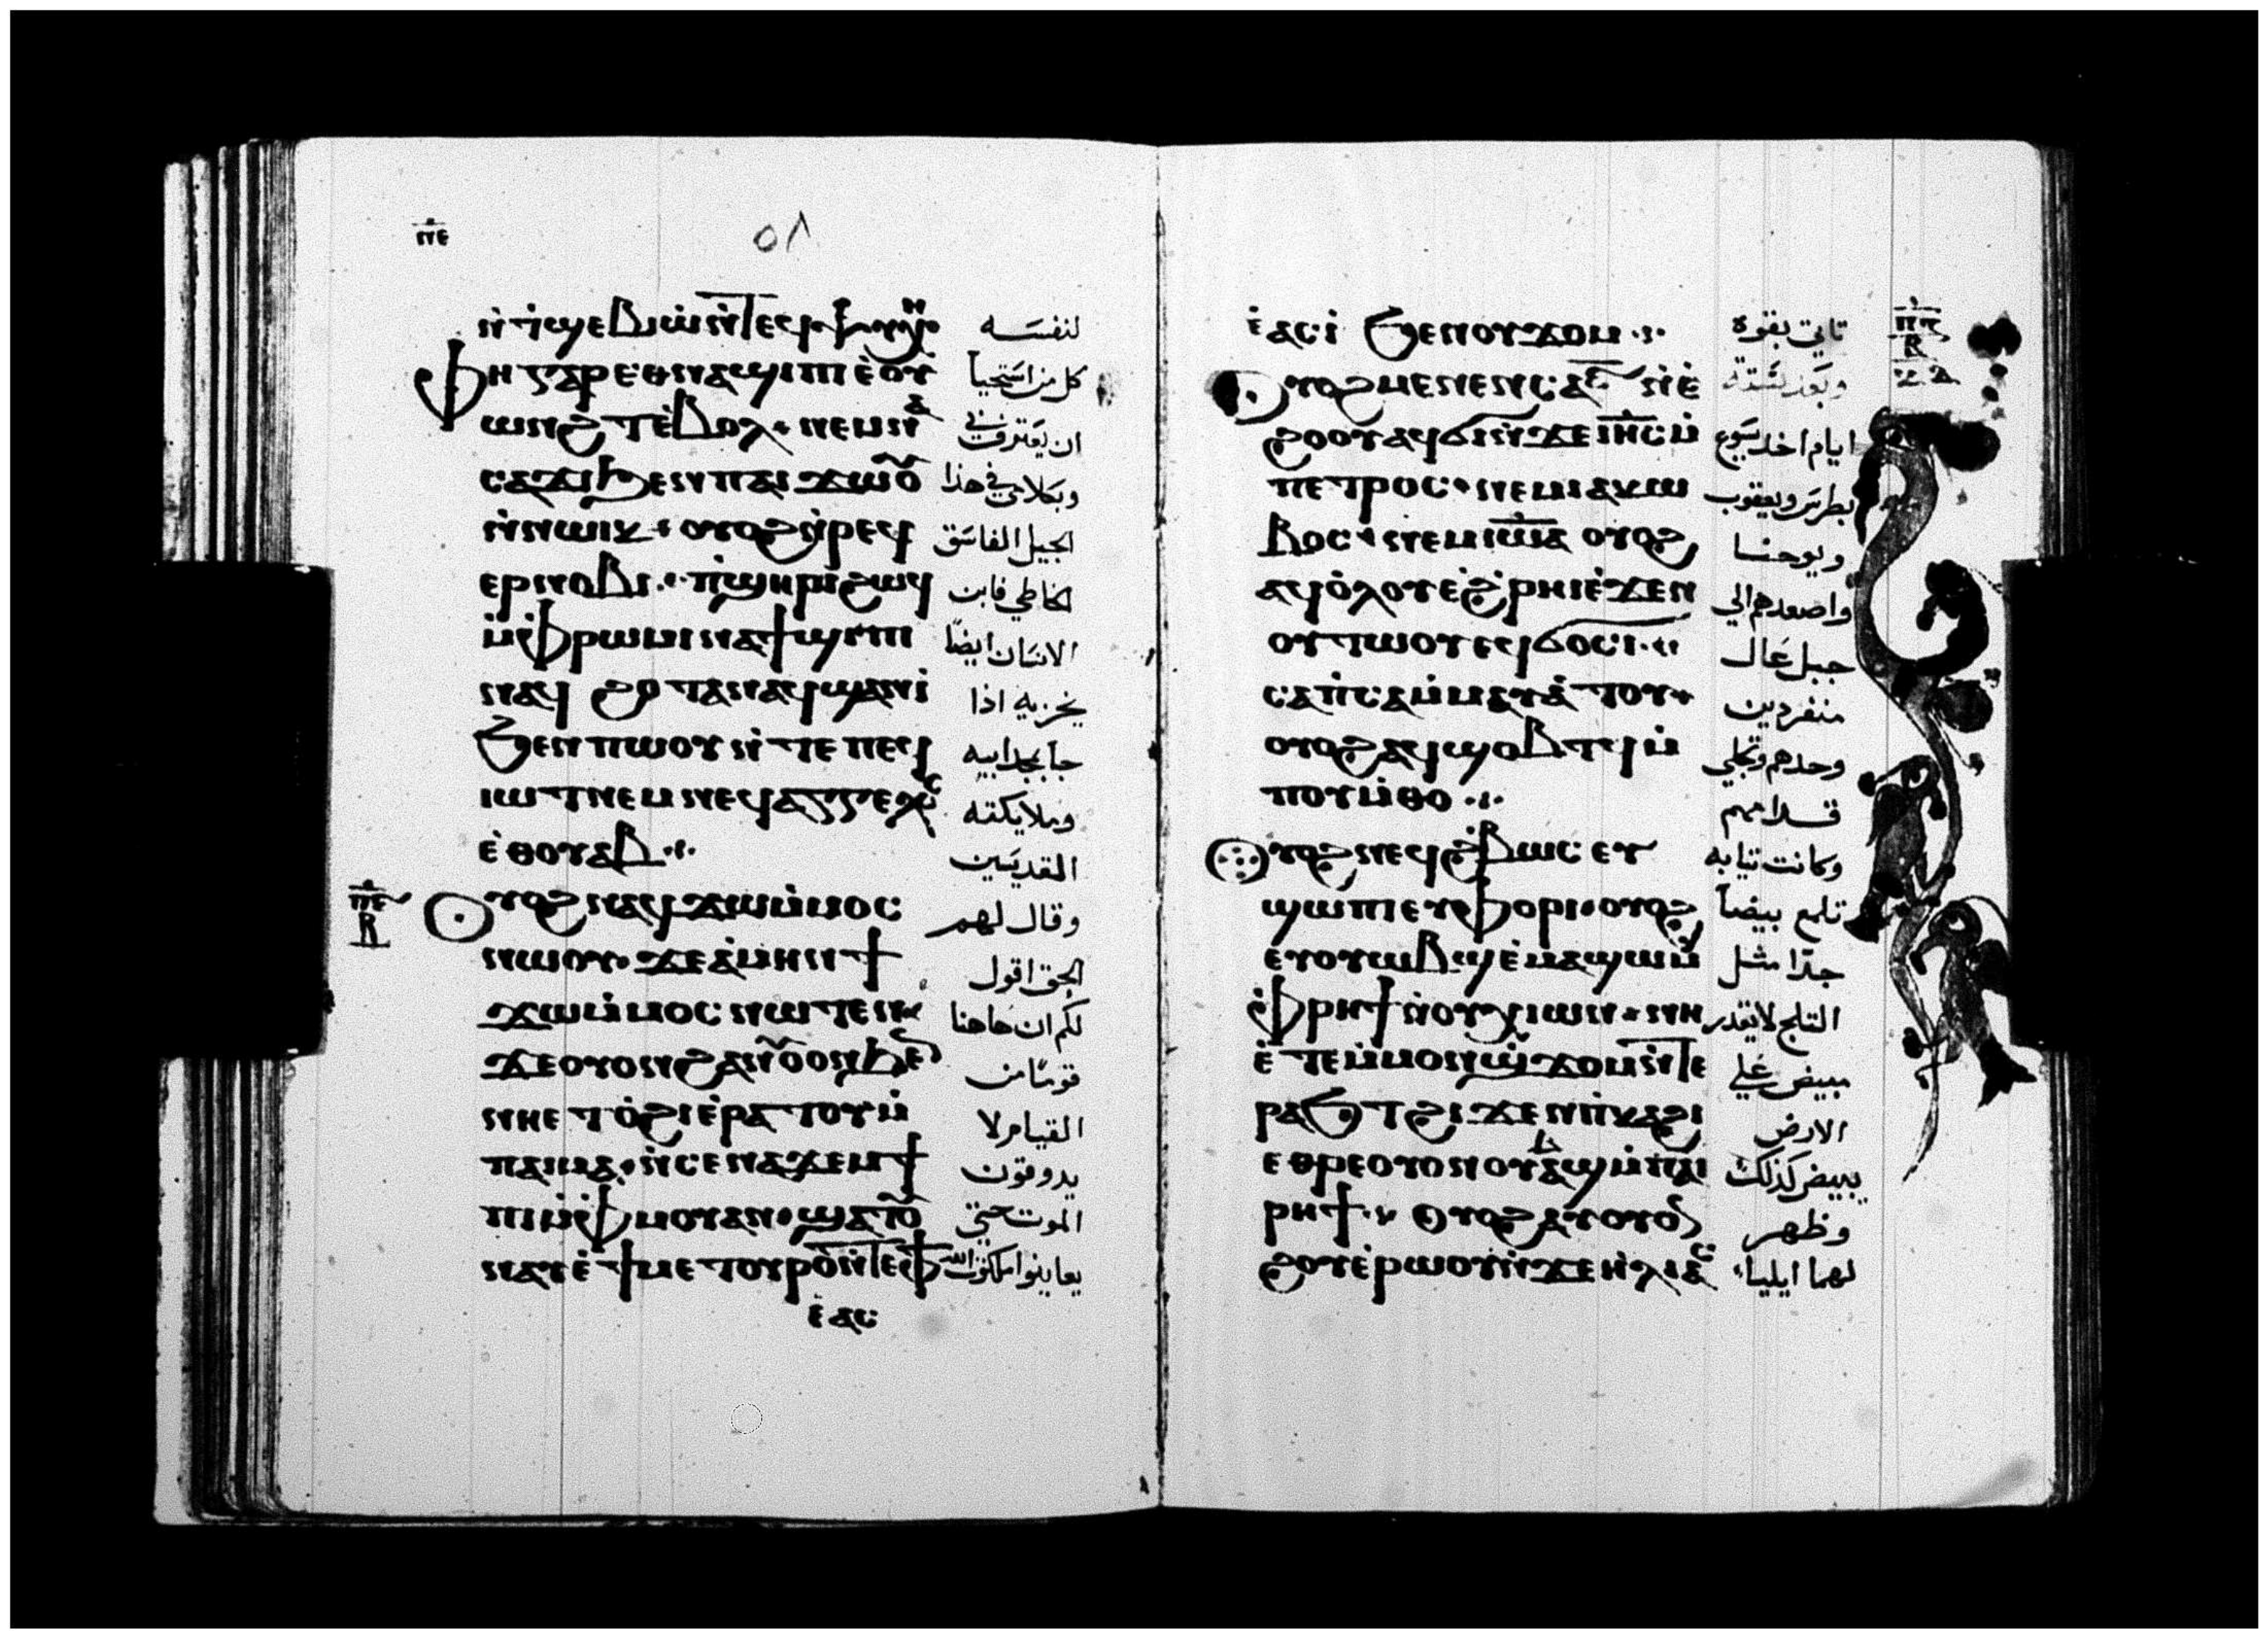 ⲛⲉ
٥٨
ⲛ̀ⲧ̀ϣⲉⲃⲓⲱ̀ⲛ̀ⲧⲉϥⲯⲩⲭⲏ لنفسه
ⲫⲏ ⲅⲁⲣ ⲉⲑⲛⲁϣⲓⲡⲓ ⲉ̀ⲟⲩ كل من استحيا
ⲱⲛϩ ⲧ ⲉ̀ⲃⲟⲗ · ⲛⲉⲙ ⲛⲁ ان يعترف في
ⲥⲁϫⲓ ϧⲉⲛ ⲡⲁⲓ ϫⲱⲟ وبكلامي في هذا
ⲛ̀ⲛⲱⲓⲕ · ⲟⲩⲟϩ ⲛ̀ⲣⲉϥ الجيل الفاسق
ⲉⲣⲛⲟⲃⲓ ·· ⲡ̀ϣⲏⲣⲓ ϩⲱϥ الخاطي فابن
ⲙ̀ⲫⲣⲱⲙⲓ ⲛⲁϯϣⲓⲡⲓ الانسان ايضًا
ⲛⲁϥ ϩⲟⲧⲁⲛ ⲁϥϣⲁⲛⲓ̀ يخزيه اذا
ϧⲉⲛ ⲡⲱⲟⲩ ⲛ̀ⲧⲉ ⲡⲉϥ جا بمجد ابيه
ⲓⲱⲧ ⲛⲉⲙ ⲛⲉϥⲁⲅⲅⲉⲗⲟⲥ وملايكته
ⲉ̀ⲑⲟⲩⲁⲃ ·· القديسين
ⲡⲉ
ⲟⲩⲟϩ ⲛⲁϥϫⲱⲙ̀ⲙⲟⲥ وقال لهم
ⲛⲱⲟⲩ · ϫⲉ ⲁ̀ⲙⲏⲛ ϯ الحق اقول
ϫⲱⲙ̀ⲙⲟⲥ ⲛⲱⲧⲉⲛ لكم ان هاهنا
ϫⲉ ⲟⲩⲟⲛ ϩⲁⲛⲟⲩⲟⲛ ϧⲉ قومًا من
ⲛⲏⲉⲧⲟ̀ϩⲓ ⲉ̀ⲣⲁⲧⲟⲩ ⲙ̀ القيام لا
ⲡⲁⲓⲙⲁ · ⲛ̀ⲥⲉⲛⲁϫⲉⲙϯ يدوقون
ⲡⲓ ⲙ̀ⲫⲙⲟⲩ ⲁⲛ · ϣⲁⲧⲟⲩ الموت حتى
ⲛⲁⲩ ⲉ̀ϯⲙⲉⲧⲟⲩⲣⲟ ⲛ̀ⲧⲉ ⲫϯ يعاينوا ملكوت الله
ⲉ̀ⲁⲥ
ⲉ̀ⲁⲥⲓ̀ ϧⲉⲛ ⲟⲩϫⲟⲙ ·· تاتي بقوة
ⲟⲩⲟϩ ⲙⲉⲛⲉⲛⲥⲁ ⲋ̅ ⲛ̀ⲉ̀ وبعد ستة
ϩⲟⲟⲩ ⲁϥϭⲓ ⲛ̀ϫⲉ ⲓⲏⲥ ⲙ̀ ايام اخد يسوع
ⲡⲉⲧⲣⲟⲥ · ⲛⲉⲙ ⲓⲁⲕⲱ بطرس ويعقوب
ⲃⲟⲥ · ⲛⲉⲙ ⲓⲱⲁ ⲟⲩⲟϩ ويوحنا
ⲁϥⲟ̀ⲗⲟⲩ ⲉ̀ϩ̀ⲣⲏⲓ ⲉ̀ϫⲉⲛ واصعدهم الي
ⲟⲩⲧⲱⲟⲩ ⲉϥϭⲟⲥⲓ ·· جبل عال
ⲥⲁⲡ̀ⲥⲁ ⲙ̀ⲙⲁⲩⲁ̀ⲧⲟⲩ · منفردين
ⲟⲩⲟϩ ⲁϥϣⲟⲃⲧϥ ⲙ̀ وحدهم وتجلي
ⲡⲟⲩⲙ̀ⲑⲟ ·· قدامهم
ⲟⲩⲟϩ ⲛⲉϥϩ̀ⲃⲱⲥ ⲉⲩ وكانت تيابه
ϣⲱⲡⲓ ⲉⲩⲫⲟⲣⲓ · ⲟⲩⲟϩ تلمع بيضاً
ⲉⲩⲟⲩⲱⲃϣ ⲉ̀ⲙⲁϣⲱ ⲙ̀ جدًا مثل
ⲫⲣⲏϯ ⲛ̀ⲟⲩⲭⲓⲱⲛ · ⲛⲏ التلج لا يقدر
ⲉ̀ⲧⲉ ⲙ̀ⲙⲟⲛ ϣ̀ϫⲟⲙ ⲛ̀ⲧⲉ مبيض علي
ⲣⲁϧⲧ ϩⲓϫⲉⲛ ⲡ̀ⲕⲁϩⲓ الارض
ⲉⲑⲣⲉ ⲟⲩⲟⲛ ⲟⲩⲃⲁϣ ⲙ̀ⲡⲁⲓ يبيض كذلك
ⲣⲏϯ ·· ⲟⲩⲟϩ ⲁⲩⲟⲩⲟⲛ وظهر
ϩⲟⲩ ⲉ̀ⲣⲱⲟⲩ ⲛ̀ϫⲉ ⲏ̀ⲗⲓⲁⲥ لهما ايليا